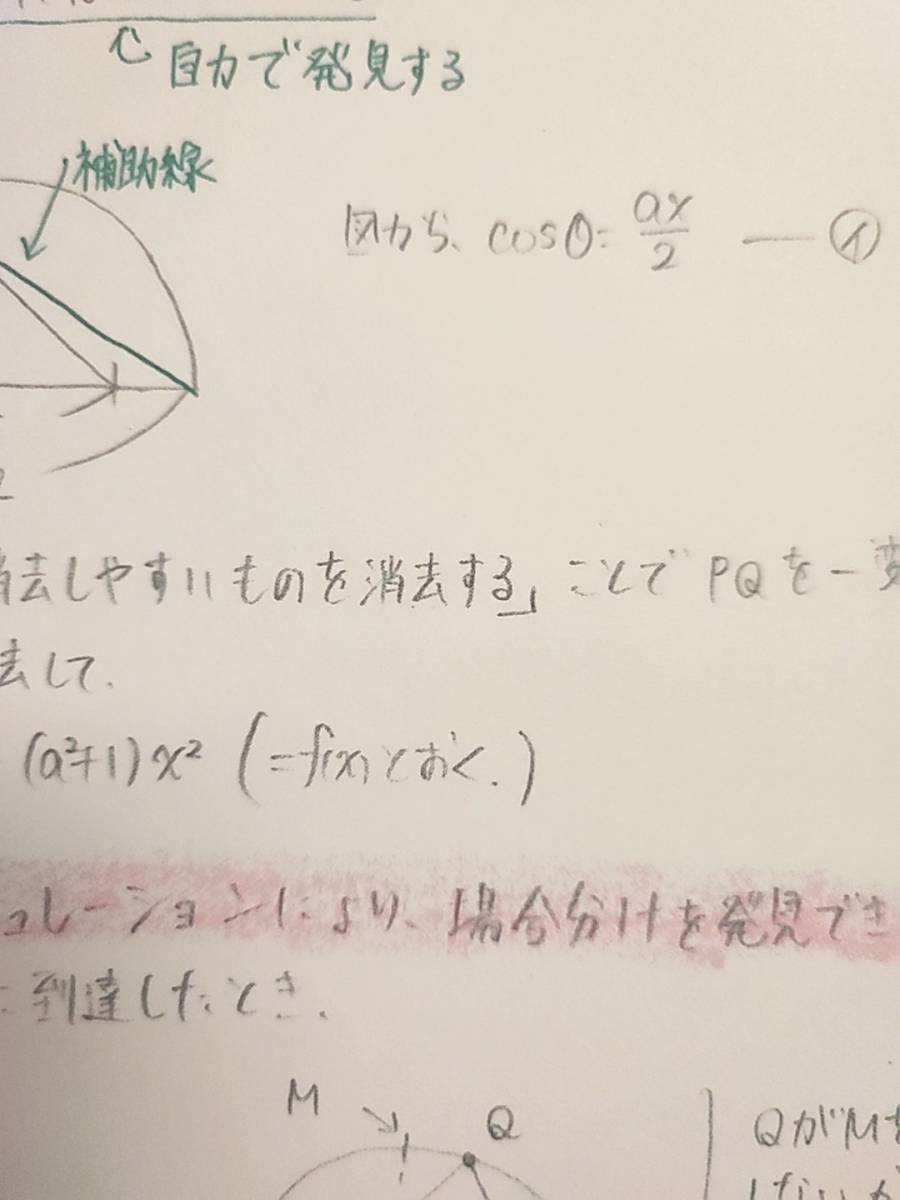 自力で発見する
補助線
図から、cosθ=ax/2 ― ㋑
去しやすいものを消去する」ことでPQを一変
去して.
(a²+1)x² (=f(x)とおく.)
ュレーションにより、場合分けを発見でき
に到達したとき.
M
Q
QがMを